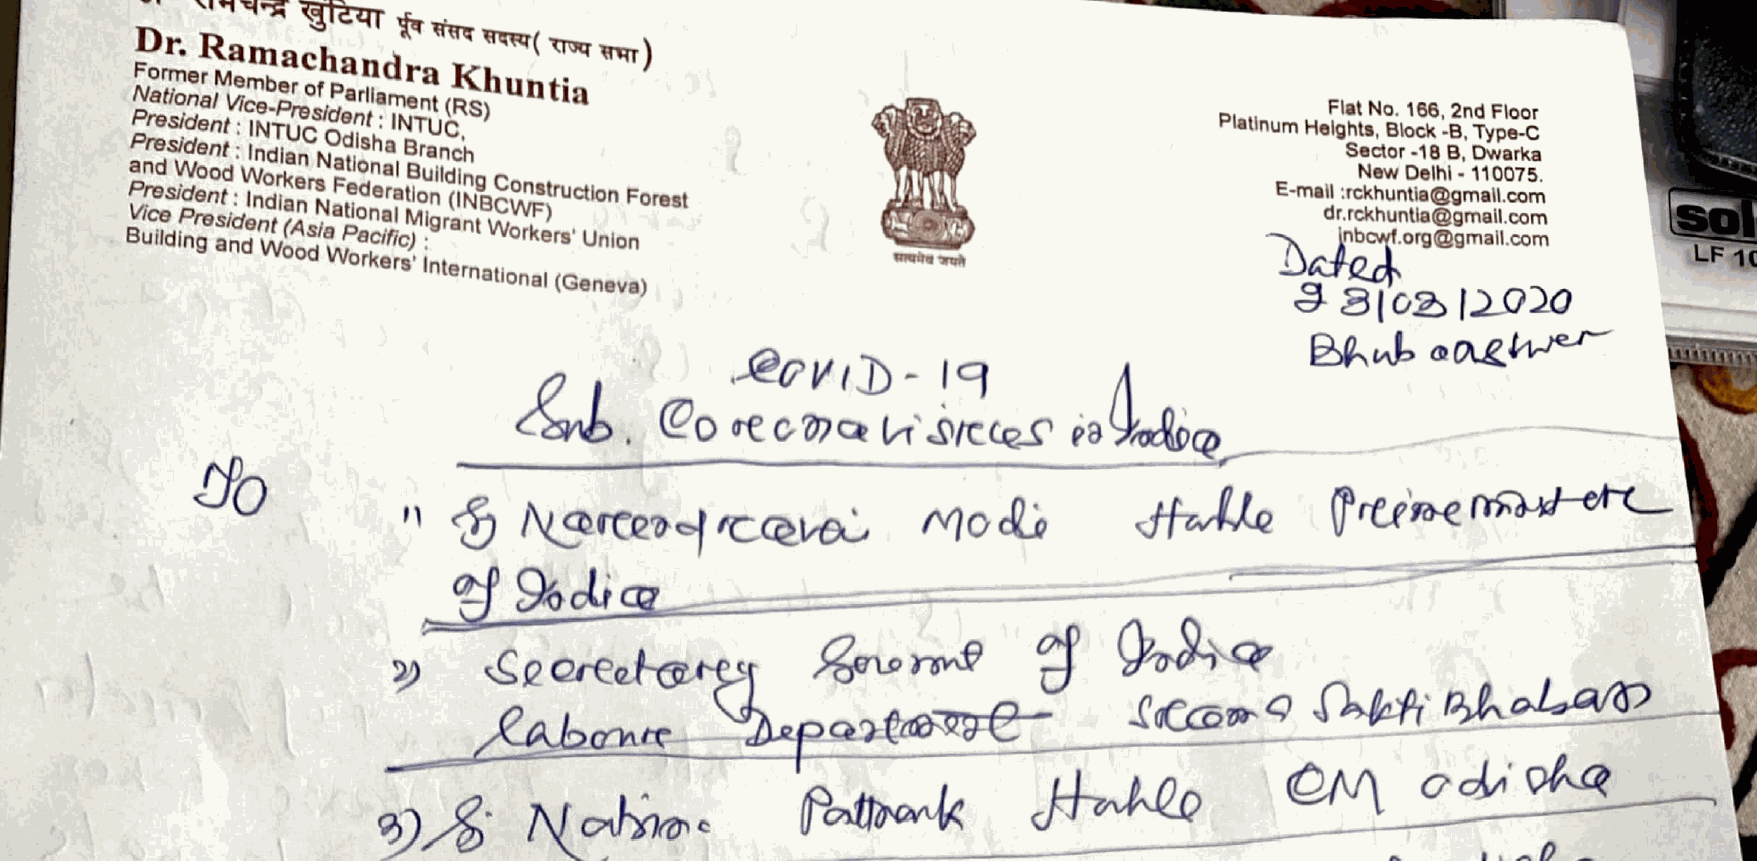 रामचन्द्र खुंटिया र्पूव संसद सदस्य( राज्य सभा)
Dr. Ramachandra Khuntia
Former Member of Parliament (RS)
National Vice-President : INTUC,
President : INTUC Odisha Branch
President : Indian National Building Construction Forest
and Wood Workers Federation (INBCWF)
President : Indian National Migrant Workers' Union
Vice President (Asia Pacific) :
Building and Wood Workers' International (Geneva)
सत्यमेव जयते
Flat No. 166, 2nd Floor
Platinum Heights, Block -B, Type-C
Sector -18 B, Dwarka
New Delhi - 110075.
E-mail :rckhuntia@gmail.com
dr.rckhuntia@gmail.com
inbcwf.org@gmail.com
Dated
23/03/2020
COVID-19
Sub. Corona in India
To
1) Modi Prime
of India
2) Secretary of India
Labour Sakti Bhaban
3) Pattnaik CM Odisha
LF 10